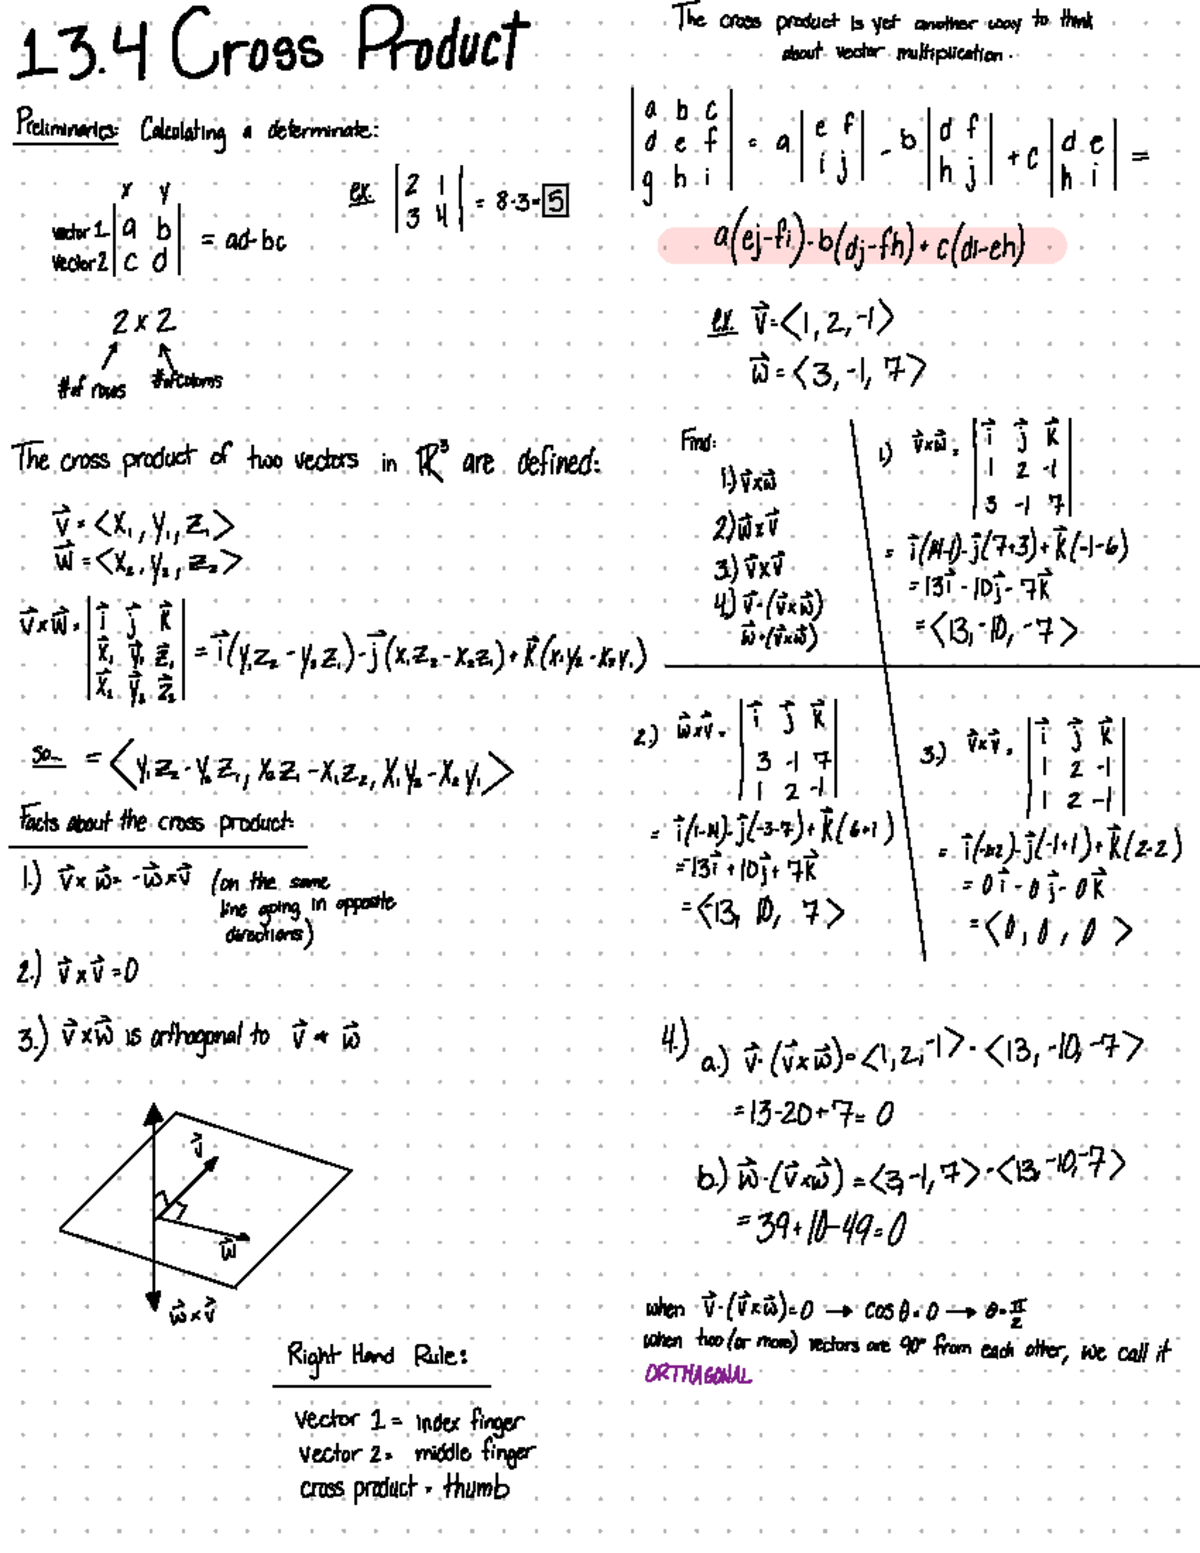 13.4 Cross Product
Preliminaries: Calculating a determinate:
x y
vector 1 | a b |
vector 2 | c d | = ad-bc
ex. | 2 1 |
| 3 4 | = 8-3=5
2 x 2
# of rows # of colomns
The cross product of two vectors in ℝ³ are defined:
v⃗ = <x₁, y₁, z₁>
w⃗ = <x₂, y₂, z₂>
v⃗ x w⃗ = | i⃗ j⃗ k⃗ |
| x⃗₁ y⃗₁ z⃗₁ | = i⃗(y₁z₂ - y₂z₁) - j⃗(x₁z₂ - x₂z₁) + k⃗(x₁y₂ - x₂y₁)
| x⃗₂ y⃗₂ z⃗₂ |
so... = <y₁z₂ - y₂z₁, x₂z₁ - x₁z₂, x₁y₂ - x₂y₁>
Facts about the cross product:
1.) v⃗ x w⃗ = -w⃗ x v⃗ (on the same
line going in opposite
directions)
2.) v⃗ x v⃗ = 0
3.) v⃗ x w⃗ is orthagonal to v⃗ + w⃗
v⃗
w⃗
w⃗ x v⃗
Right Hand Rule:
vector 1 = index finger
vector 2 = middle finger
cross product = thumb
The cross product is yet another way to think
about vector multiplication.
| a b c |
| d e f | = a | e f | - b | d f | + c | d e | =
| g h i | | i j | | h j | | h i |
a(ej-fi)-b(dj-fh)+c(di-eh)
ex. v⃗ = <1, 2, -1>
w⃗ = <3, -1, 7>
Find:
1.) v⃗ x w⃗
2.) w⃗ x v⃗
3.) v⃗ x v⃗
4.) v⃗ · (v⃗ x w⃗)
w⃗ · (v⃗ x w⃗)
1.) v⃗ x w⃗ = | i⃗ j⃗ k⃗ |
| 1 2 -1 |
| 3 -1 7 |
= i⃗(14-1)-j⃗(7+3)+k⃗(-1-6)
= 13i⃗ - 10j⃗ - 7k⃗
= <13, -10, -7>
2.) w⃗ x v⃗ = | i⃗ j⃗ k⃗ |
| 3 -1 7 |
| 1 2 -1 |
= i⃗(1-14)-j⃗(-3-7)+k⃗(6+1)
= -13i⃗ + 10j⃗ + 7k⃗
= <-13, 10, 7>
3.) v⃗ x v⃗ = | i⃗ j⃗ k⃗ |
| 1 2 -1 |
| 1 2 -1 |
= i⃗(-2+2)-j⃗(-1+1)+k⃗(2-2)
= 0i⃗ - 0j⃗ - 0k⃗
= <0, 0, 0>
4.) a.) v⃗ · (v⃗ x w⃗) = <1, 2, -1> · <13, -10, -7>
= 13-20+7= 0
b.) w⃗ · (v⃗ x w⃗) = <3, -1, 7> · <13, -10, -7>
= 39+10-49=0
when v⃗ · (v⃗ x w⃗) = 0 → cos θ = 0 → θ = π/2
when two (or more) vectors are 90° from each other, we call it
ORTHAGONAL